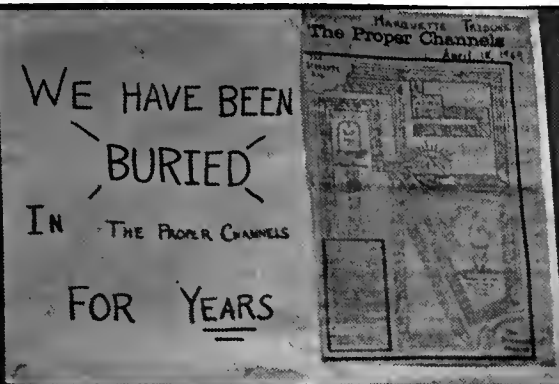 WE HAVE BEEN
BURIED
IN THE PROPER CHANNELS
FOR YEARS
MARQUETTE TRIBUNE
The Proper Channels
April 18, 1969